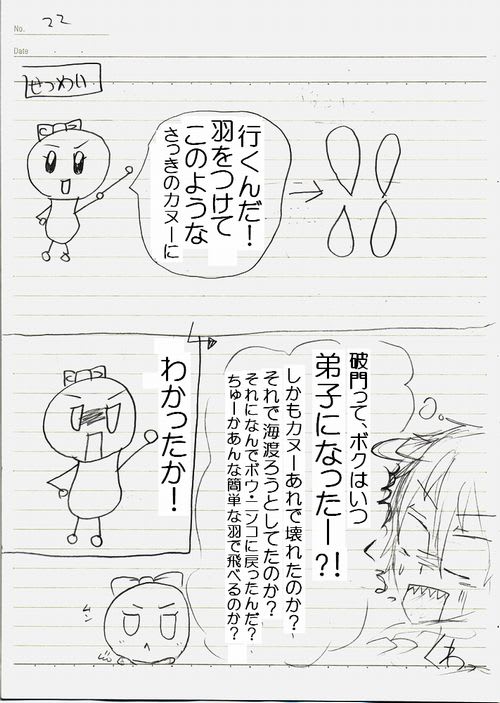 No. 22
Date
せつめい
さっきのカヌーに
このような
羽をつけて
行くんだ！
わかったか！
破門って、ボクはいつ
弟子になったー?!
しかもカヌーあれで壊れたのか？
それで海渡ろうとしてたのか？
それになんでボウ・ニンコに戻ったんだ？
ちゅーかあんな簡単な羽で飛べるのか？
くわっ